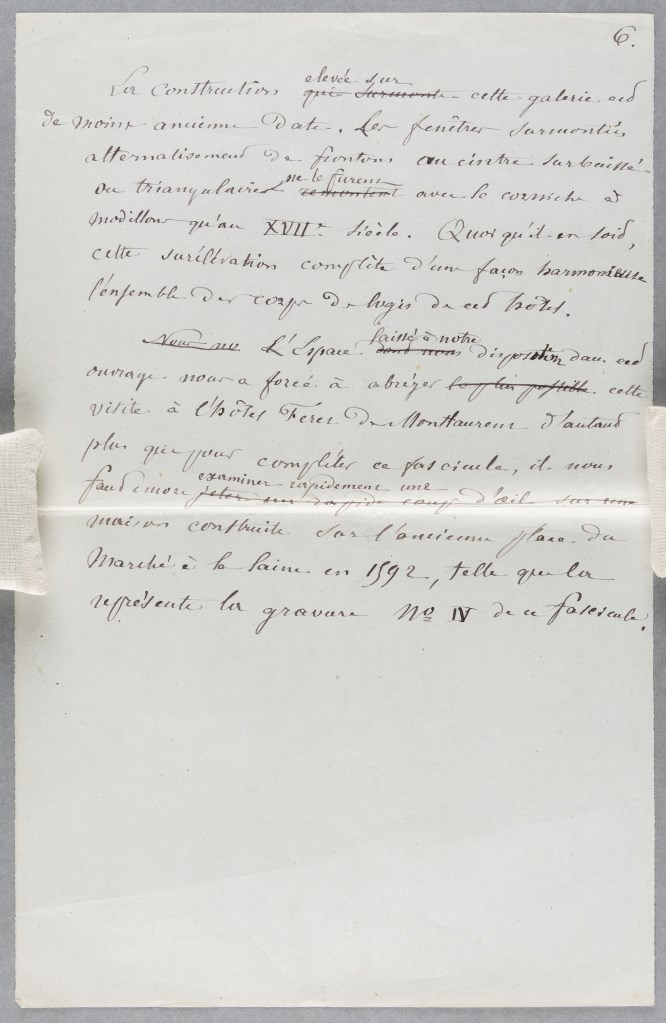 6.
La construction élevée sur ~~qui surmonte~~ cette galerie est
de moins ancienne date. Les fenêtres surmontées
alternativement de frontons au cintre surbaissé
ou triangulaires ne le furent ~~remontent~~ avec la corniche à
modillons qu'au XVIIe siècle. Quoi qu'il en soit,
cette surélévation complète d'une façon harmonieuse
l'ensemble des corps de logis de cet hôtel.
~~Nous ne~~ L'Espace laissé à notre ~~dont nous~~ disposition dans cet
ouvrage nous a forcé à abréger ~~le plus possible~~ cette
visite à l'hôtel Féret de Monthaurens d'autant
plus que pour compléter ce fascicule, il nous
faut encore examiner rapidement une ~~jeter un rapide coup d'œil sur une~~
maison construite sur l'ancienne place du
Marché à la laine en 1592, telle que la
représente la gravure No IV de ce fascicule.